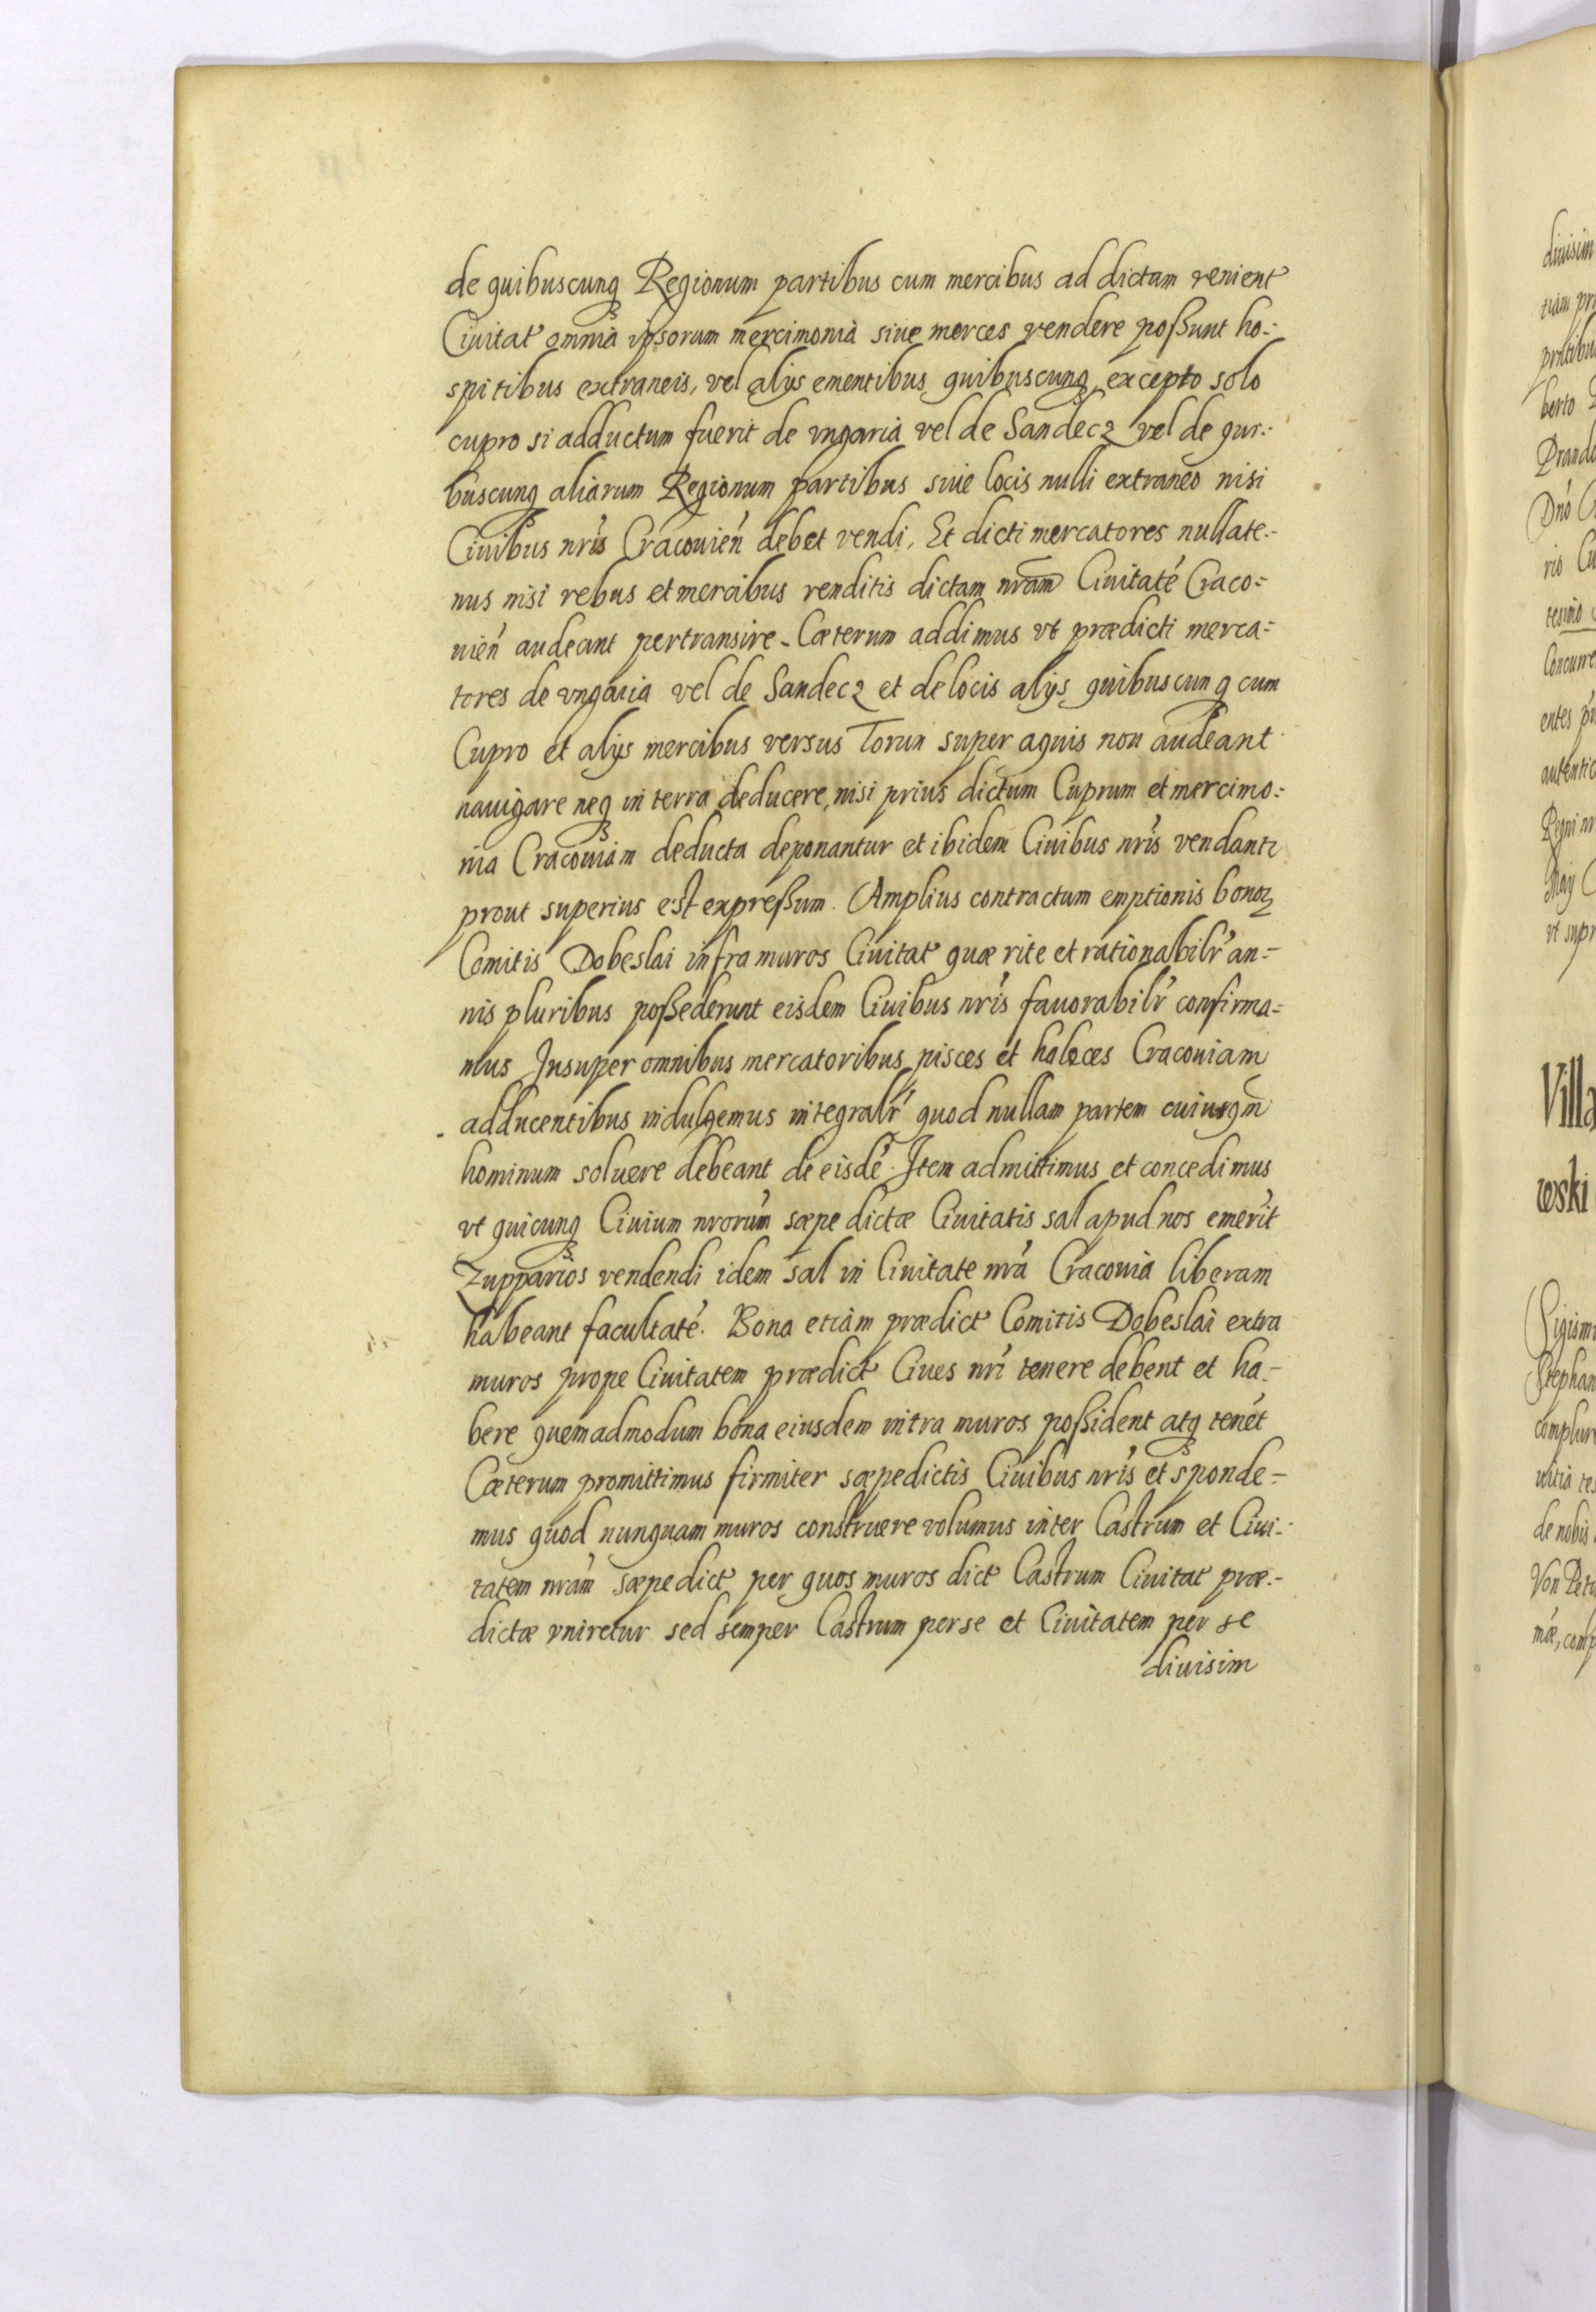 de quibuscunq Regionum partibus cum mercibus ad dictam venient
Ciuitat omnia ipsorum mercimonia siue merces vendere poßunt ho-
spitibus extraneis, vel alijs ementibus quibuscunq, excepto solo
cupro si adductum fuerit de vngaria vel de Sandecz vel de qui-
buscunq aliarum Regionum partibus siue locis nulli extraneo nisi
Ciuibus nris Cracouień debet vendi, Et dicti mercatores nullate-
nus nisi rebus et mercibus venditis dictam nram Ciuitaté Craco-
uień audeant pertransire. Cæterum addimus vt prædicti merca-
tores de vngaria vel de Sandecz et de locis alijs quibuscunq cum
Cupro et alijs mercibus versus Torun super aquis non audeant
nauigare neq in terra deducere, nisi prius dictum Cuprum et mercimo-
nia Cracouiam deducta deponantur et ibidem Ciuibus nris vendantr
prout superius est expreßum. Amplius contractum emptionis bonoꝝ
Comitis Dobeslai infra muros Ciuitat quæ rite et rationabilr an-
nis pluribus poßederunt eisdem Ciuibus nris fauorabilr confirma-
mus Insuper omnibus mercatoribus pisces et haleces Cracouiam
adducentibus indulgemus integralr quod nullam partem cuiusqm
hominum soluere debeant de eisdé. Item admittimus et concedimus
vt quicunq Ciuium nrorum sæpe dictæ Ciuitatis sal apud nos emerit
Zupparios vendendi idem sal in Ciuitate nra Cracouia liberam
habeant facultaté. Bona etiam prædict Comitis Dobeslai extra
muros prope Ciuitatem prædict Ciues nri tenere debent et ha-
bere quemadmodum bona eiusdem intra muros poßident atq tenét
Cæterum promittimus firmiter sæpedictis Ciuibus nris et sponde-
mus quod nunquam muros construere volumus inter Castrum et Ciui-
tatem nram sæpedict per quos muros dict Castrum Ciuitat præ-
dictæ vniretur sed semper Castrum per se et Ciuitatem per se
diuisim